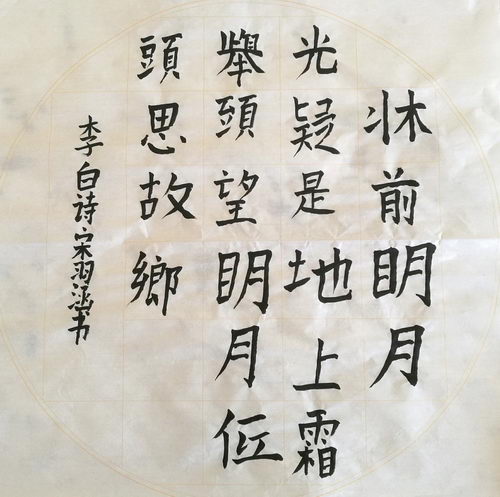 牀前明月
光疑是地上霜
舉頭望明月低
頭思故鄉
李白诗宋羽涵书